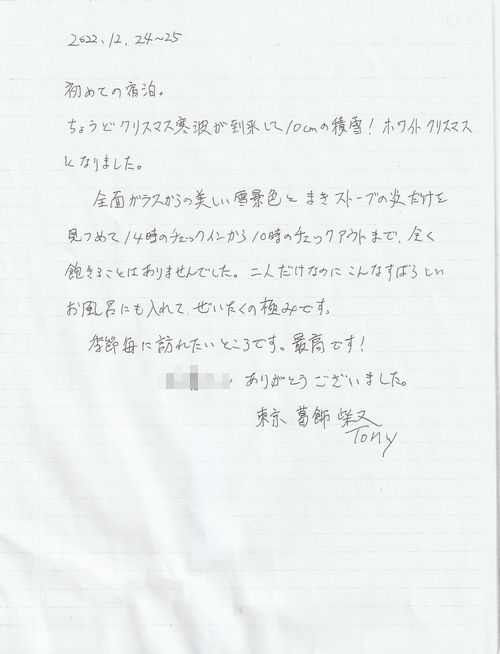 2022.12.24~25
初めての宿泊。
ちょうどクリスマス寒波が到来して10cmの積雪!ホワイトクリスマス
になりました。
全面ガラスからの美しい雪景色とまきストーブの炎だけを
見つめて14時のチェックインから10時のチェックアウトまで、全く
飽きることはありませんでした。二人だけなのにこんなすばらしい
お風呂にも入れて、ぜいたくの極みです。
季節毎に訪れたいところです。最高です!
ありがとうございました。
東京 葛飾 柴又
Tony